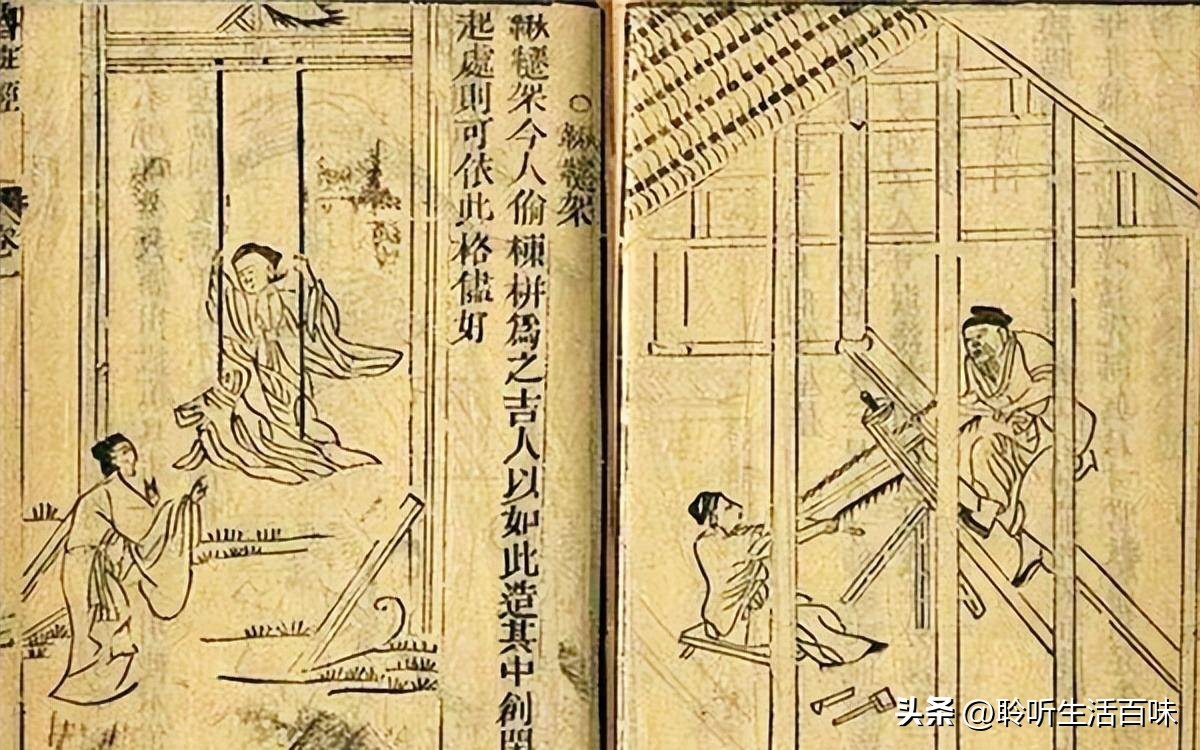 ○鞦韆架
鞦韆架今人偷棟栟爲之吉人以如此造其中創
起處則可依此格儘好
魯班經
卷
头条 @聆听生活百味